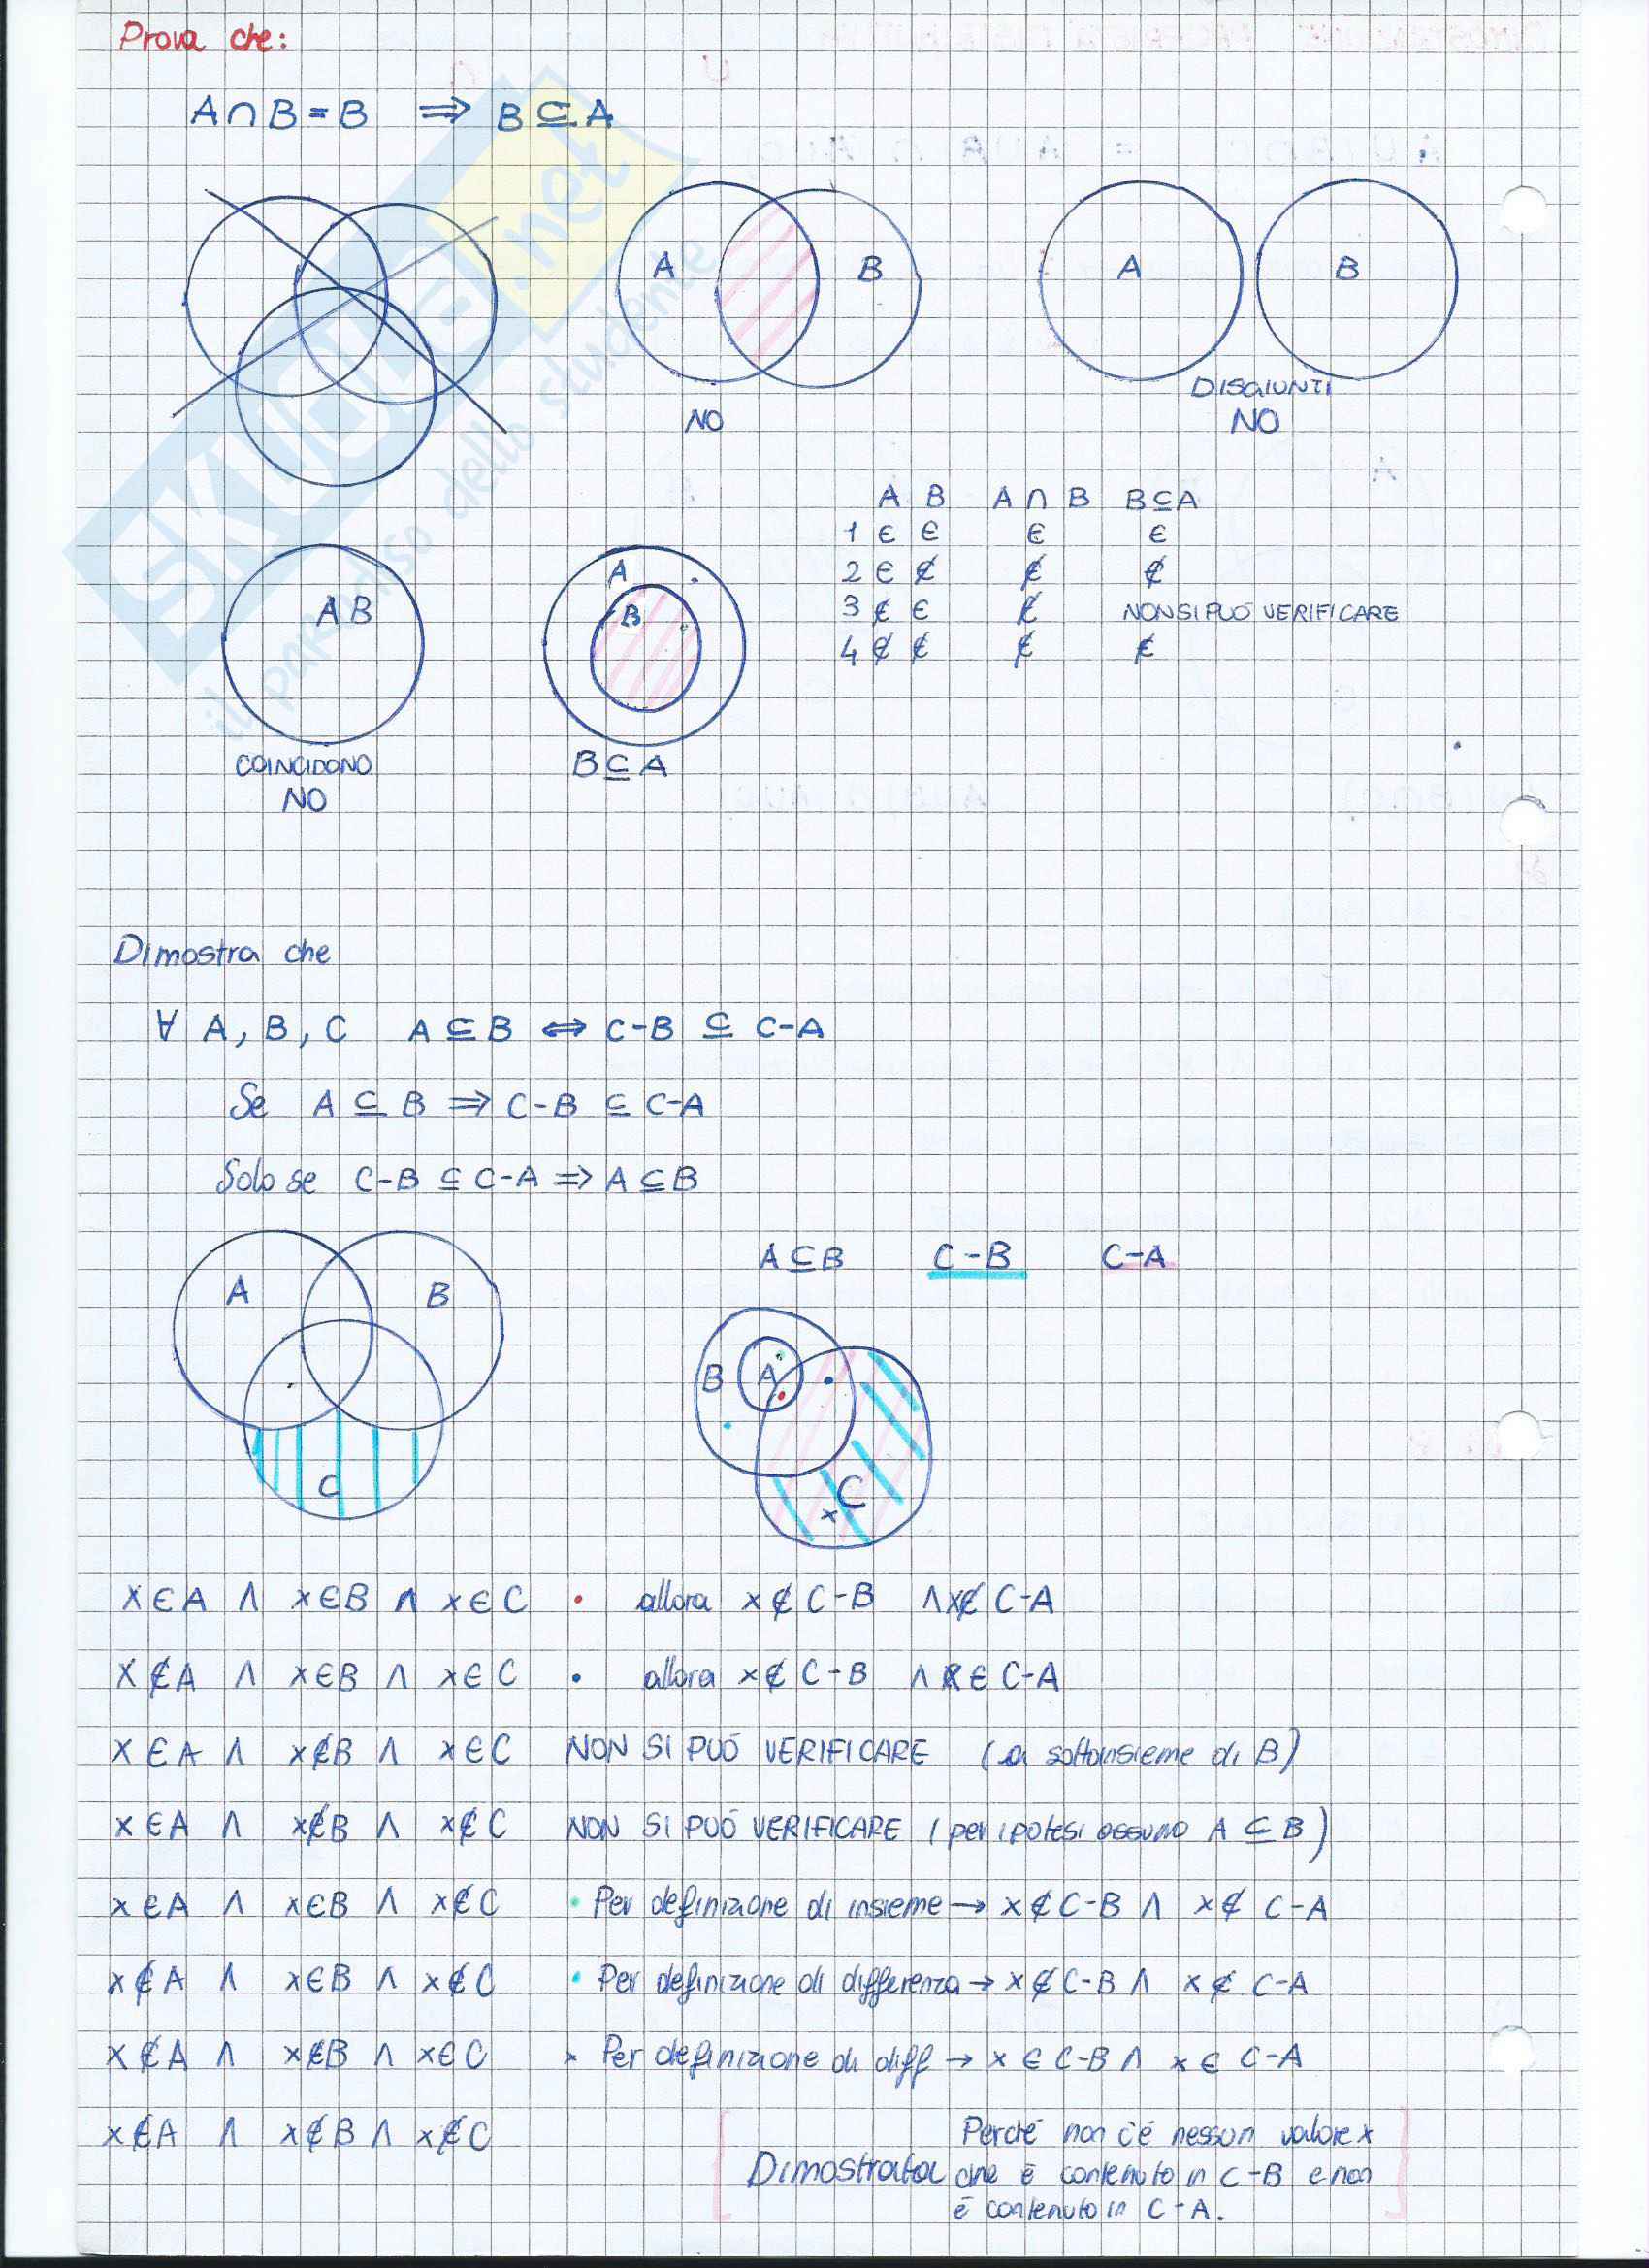 Prova che:
A ∩ B = B ⇒ B ⊆ A
A B
NO
A B
DISGIUNTI
NO
A B A ∩ B B ⊆ A
1 ∈ ∈ ∈ ∈
2 ∈ ∉ ∉ ∉
3 ∉ ∈ ∉ NON SI PUÓ VERIFICARE
4 ∉ ∉ ∉ ∉
A B
COINCIDONO
NO
A
B
B ⊆ A
SKUOLA.net
il paradiso dello studente
Dimostra che
∀ A, B, C A ⊆ B ⇔ C-B ⊆ C-A
Se A ⊆ B ⇒ C-B ⊆ C-A
Solo se C-B ⊆ C-A ⇒ A ⊆ B
A B
C
A ⊆ B C-B C-A
B A
C
x
x ∈ A ∧ x ∈ B ∧ x ∈ C • allora x ∉ C-B ∧ x ∉ C-A
x ∉ A ∧ x ∈ B ∧ x ∈ C • allora x ∉ C-B ∧ x ∈ C-A
x ∈ A ∧ x ∉ B ∧ x ∈ C NON SI PUÓ VERIFICARE (a sottoinsieme di B)
x ∈ A ∧ x ∉ B ∧ x ∉ C NON SI PUÓ VERIFICARE (per ipotesi assumo A ⊆ B)
x ∈ A ∧ x ∈ B ∧ x ∉ C • Per definizione di insieme → x ∉ C-B ∧ x ∉ C-A
x ∉ A ∧ x ∈ B ∧ x ∉ C • Per definizione di differenza → x ∉ C-B ∧ x ∉ C-A
x ∉ A ∧ x ∉ B ∧ x ∈ C x Per definizione di diff → x ∈ C-B ∧ x ∈ C-A
x ∉ A ∧ x ∉ B ∧ x ∉ C
Perché non c'é nessun valore x
Dimostrata che é contenuto in C-B e non
é contenuto in C-A.